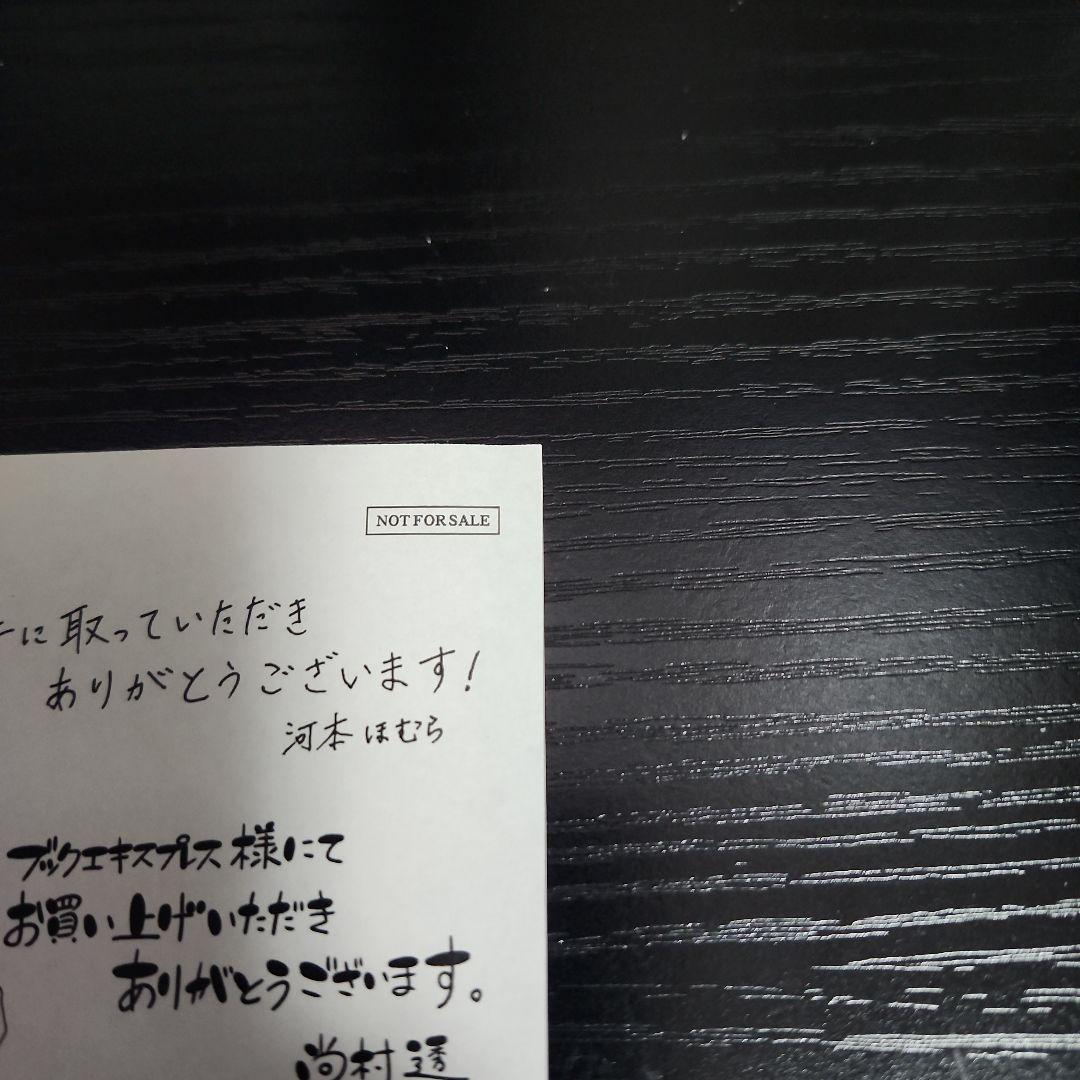 NOT FOR SALE
手に取っていただき
ありがとうございます!
河本ほむら
ブックエキスプレス様にて
お買い上げいただき
ありがとうございます。
尚村透